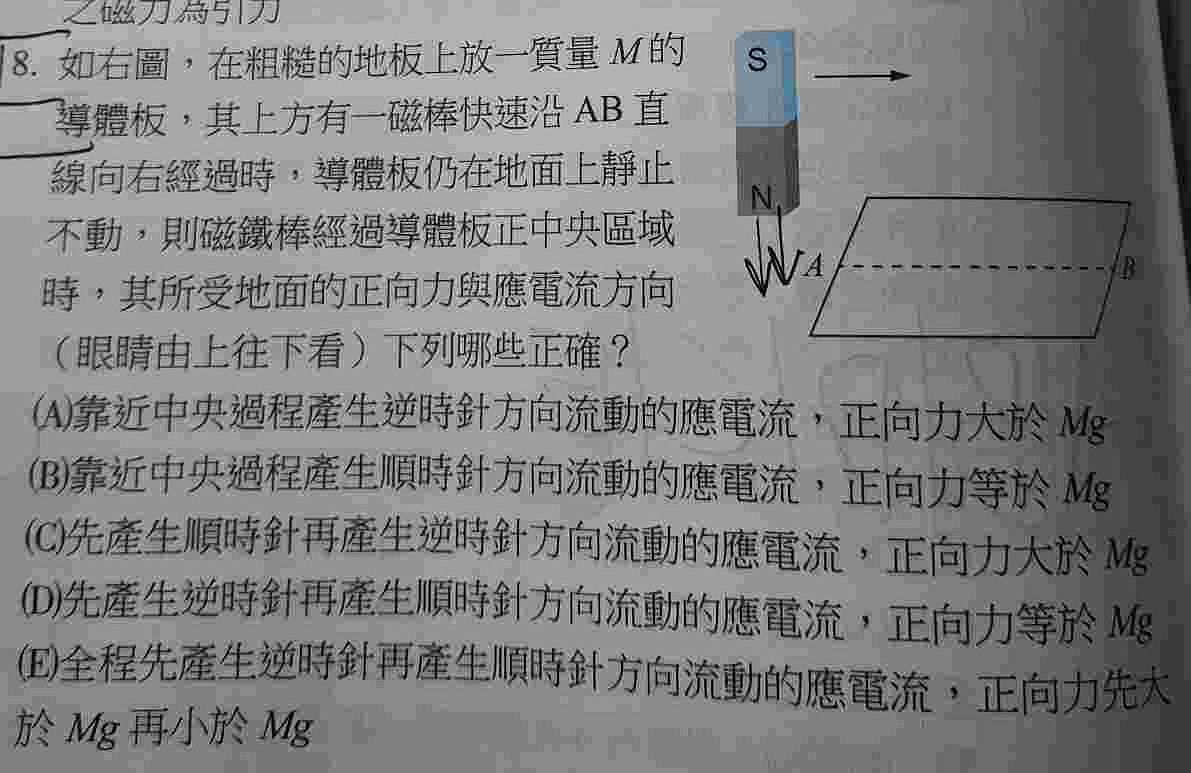 之磁力為引力
8. 如右圖，在粗糙的地板上放一質量 M 的
導體板，其上方有一磁棒快速沿 AB 直
線向右經過時，導體板仍在地面上靜止
不動，則磁鐵棒經過導體板正中央區域
時，其所受地面的正向力與應電流方向
（眼睛由上往下看）下列哪些正確？
S
N
A
B
(A)靠近中央過程產生逆時針方向流動的應電流，正向力大於 Mg
(B)靠近中央過程產生順時針方向流動的應電流，正向力等於 Mg
(C)先產生順時針再產生逆時針方向流動的應電流，正向力大於 Mg
(D)先產生逆時針再產生順時針方向流動的應電流，正向力等於 Mg
(E)全程先產生逆時針再產生順時針方向流動的應電流，正向力先大
於 Mg 再小於 Mg